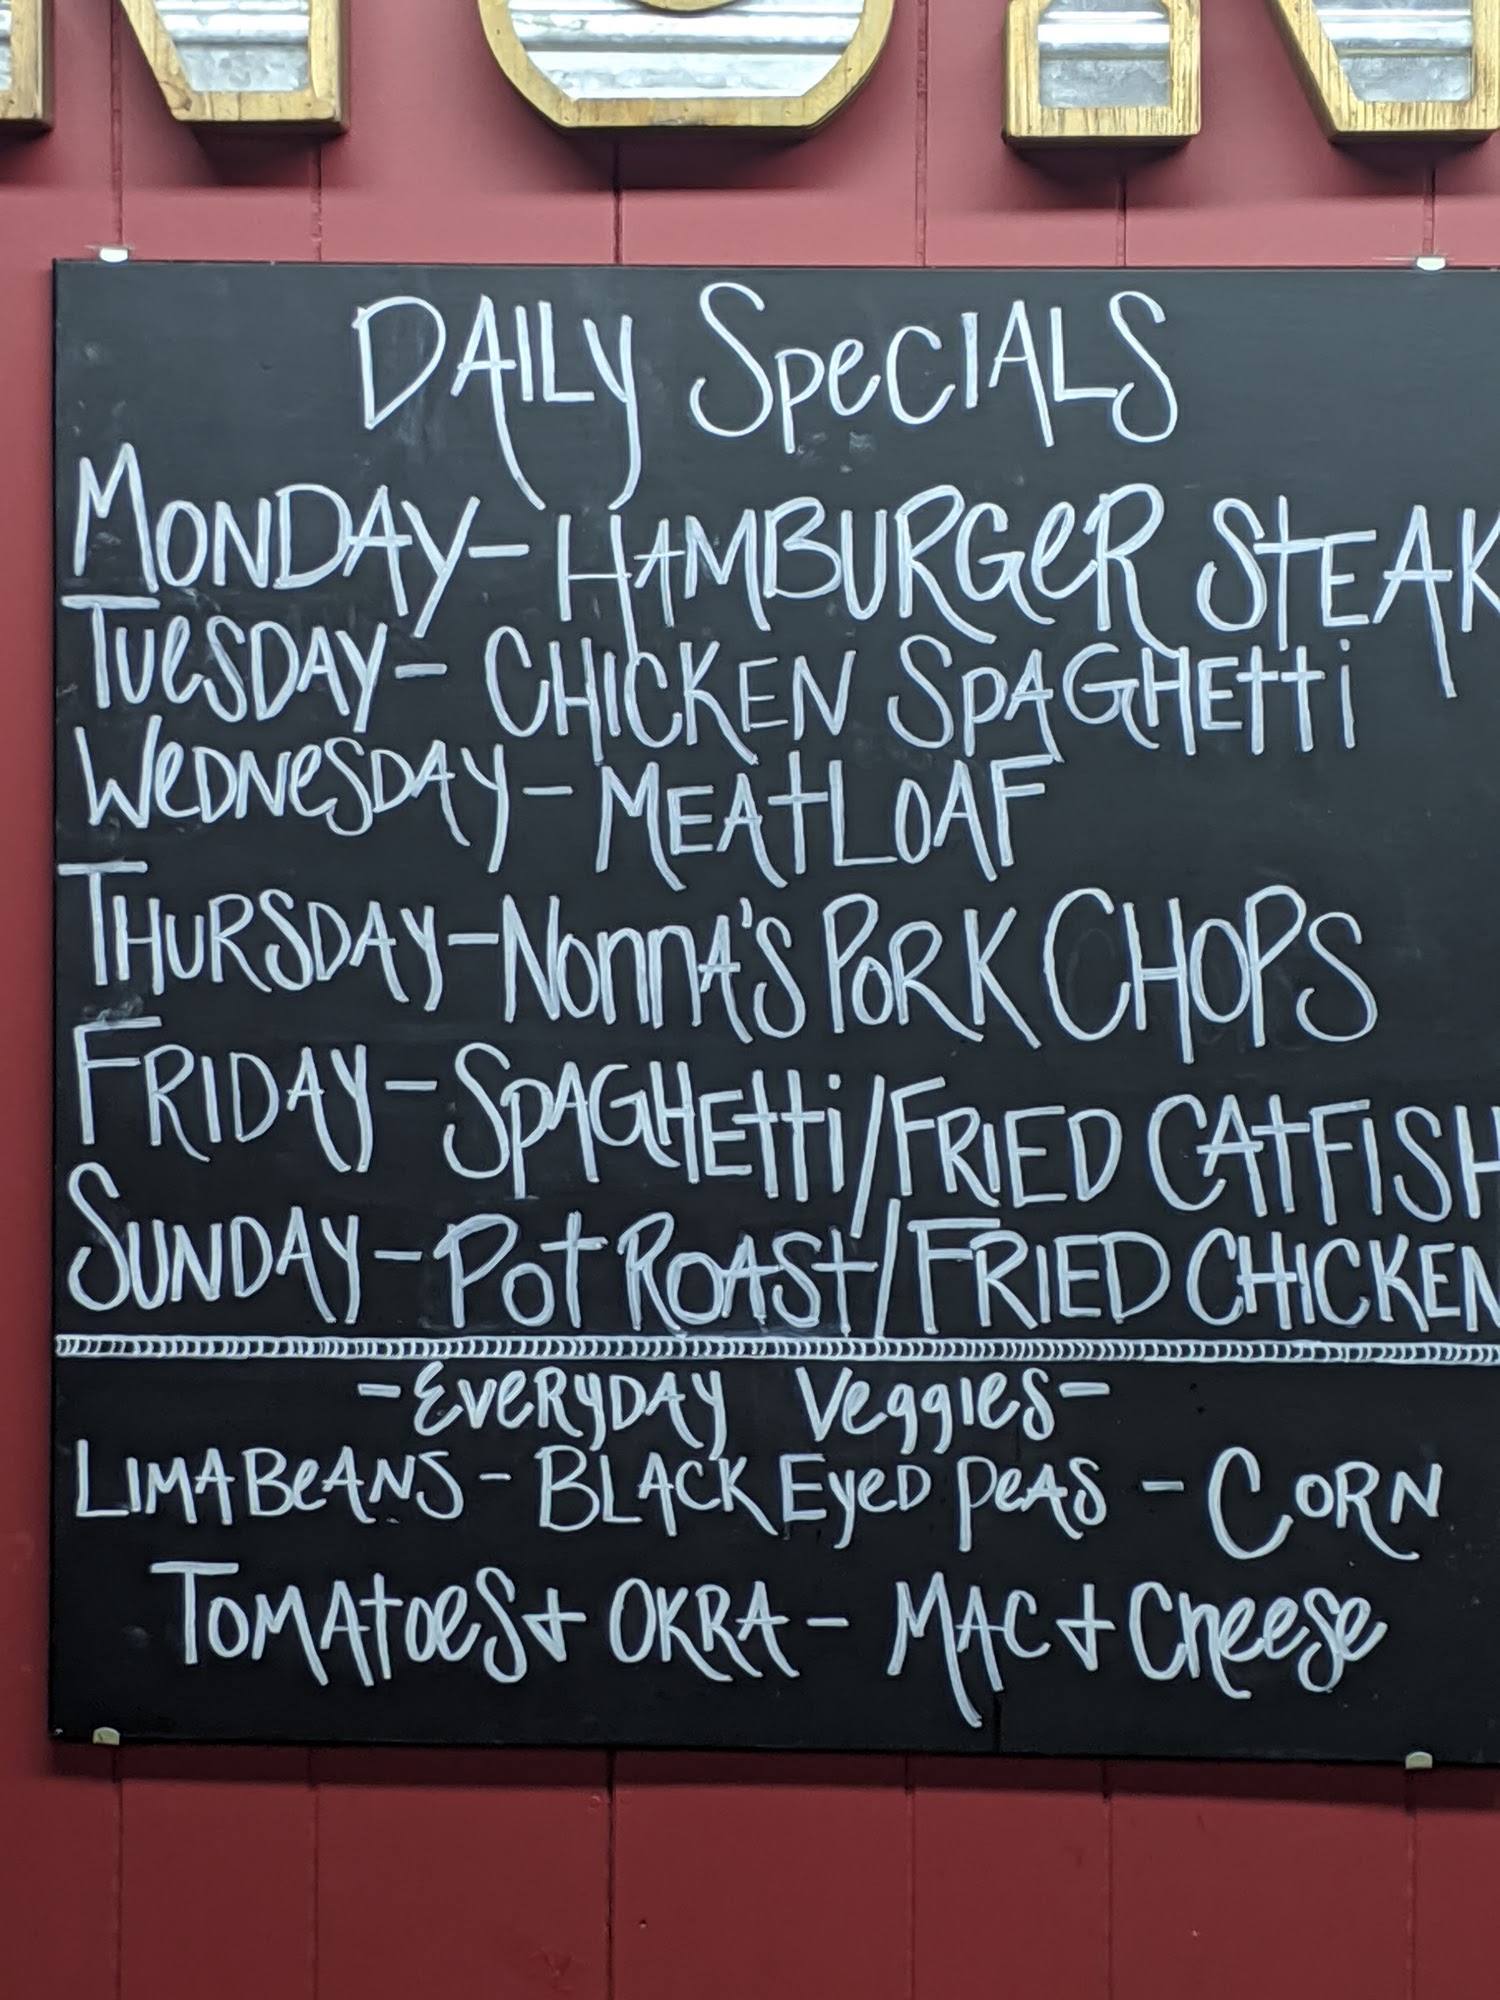 DAILY SPECIALS
MONDAY- HAMBURGER STEAK
TUESDAY- CHICKEN SPAGHETTI
WEDNESDAY- MEATLOAF
THURSDAY- NONNA'S PORK CHOPS
FRIDAY- SPAGHETTI/FRIED CATFISH
SUNDAY- POT ROAST/FRIED CHICKEN
-EVERYDAY VEGGIES-
LIMA BEANS - BLACK EYED PEAS - CORN
TOMATOES & OKRA - MAC & CHEESE